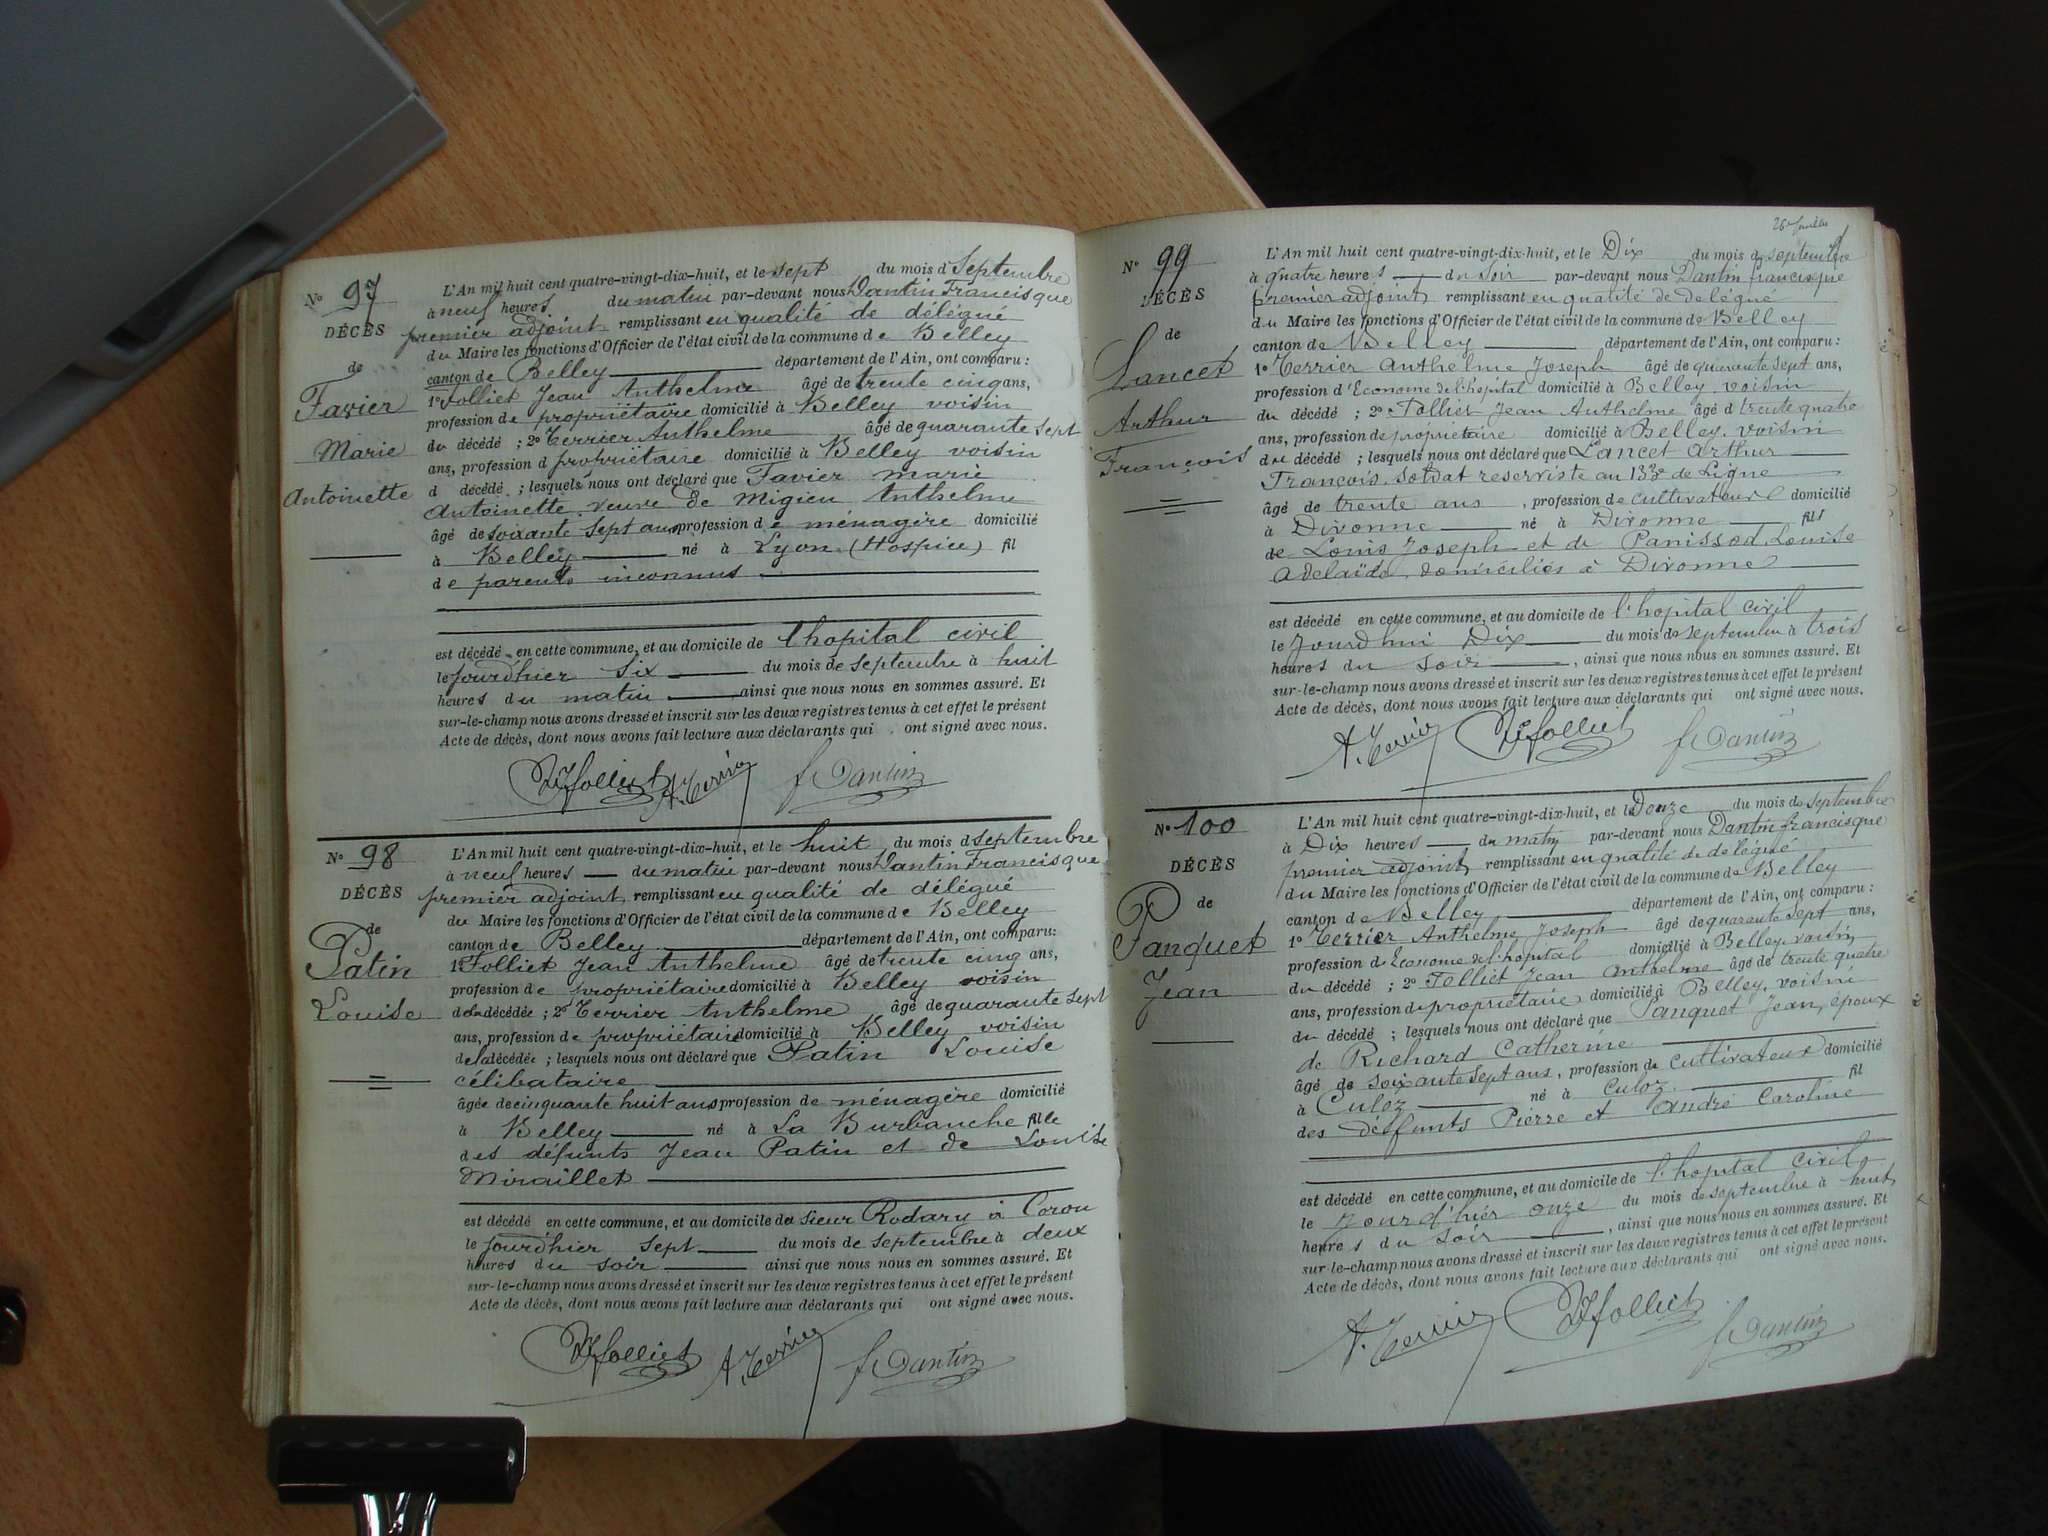 N° 97
DÉCÈS
de
Favier
Marie
Antoinette
L'An mil huit cent quatre-vingt-dix-huit, et le sept du mois d Septembre
à neuf heures du matin par-devant nous Dantin Francisque
premier adjoint remplissant en qualité de délégué
du Maire les fonctions d'Officier de l'état civil de la commune de Belley
canton de Belley département de l'Ain, ont comparu :
1° Folliet Jean Anthelme âgé de trente cinq ans,
profession de propriétaire domicilié à Belley voisin
du décédé ; 2° Terrier Anthelme âgé de quarante sept
ans, profession d propriétaire domicilié à Belley voisin
d décédé ; lesquels nous ont déclaré que Favier marie
Antoinette veuve de Migieu Anthelme
âgé de soixante sept ans profession de ménagère domicilié
à Belley né à Lyon (Hospice) fil
de parents inconnus
est décédé en cette commune, et au domicile de l'hopital civil
le jourdhier six du mois de septembre à huit
heures du matin ainsi que nous nous en sommes assuré. Et
sur-le-champ nous avons dressé et inscrit sur les deux registres tenus à cet effet le présent
Acte de décès, dont nous avons fait lecture aux déclarants qui ont signé avec nous.
Folliet A. Terrier f Dantin
N° 98
DÉCÈS
de
Patin
Louise
L'An mil huit cent quatre-vingt-dix-huit, et le huit du mois d septembre
à neuf heures du matin par-devant nous Dantin Francisque
premier adjoint remplissant en qualité de délégué
du Maire les fonctions d'Officier de l'état civil de la commune de Belley
canton de Belley département de l'Ain, ont comparu:
1° Folliet Jean Anthelme âgé de trente cinq ans,
profession de propriétaire domicilié à Belley voisin
de la décédée ; 2° Terrier Anthelme âgé de quarante sept
ans, profession de propriétaire domicilié à Belley voisin
de la décédée ; lesquels nous ont déclaré que Patin Louise
célibataire
âgée de cinquante huit ans profession de ménagère domicilié
à Belley né à La Burbanche fille
des défunts Jean Patin et de Louise
Miraillet
est décédé en cette commune, et au domicile du sieur Rodary à Coron
le jourdhier sept du mois de septembre à deux
heures du soir ainsi que nous nous en sommes assuré. Et
sur-le-champ nous avons dressé et inscrit sur les deux registres tenus à cet effet le présent
Acte de décès, dont nous avons fait lecture aux déclarants qui ont signé avec nous.
Folliet A. Terrier f Dantin
N° 99
DÉCÈS
de
Lancet
Arthur
François
L'An mil huit cent quatre-vingt-dix-huit, et le Dix du mois d septembre
à quatre heures du soir par-devant nous Dantin francisque
premier adjoint remplissant en qualité de délégué
du Maire les fonctions d'Officier de l'état civil de la commune de Belley
canton de Belley département de l'Ain, ont comparu :
1° Terrier Anthelme Joseph âgé de quarante sept ans,
profession d'Econome de l'hopital domicilié à Belley voisin
du décédé ; 2° Folliet Jean Anthelme âgé d trente quatre
ans, profession de propriétaire domicilié à Belley, voisin
du décédé ; lesquels nous ont déclaré que Lancet Arthur
François, soldat reserviste au 133e de Ligne
âgé de trente ans, profession de cultivateur domicilié
à Divonne né à Divonne fils
de Louis Joseph et de Panissod Louise
Adelaïde domiciliés à Divonne
est décédé en cette commune, et au domicile de l'hopital civil
le Jourdhui Dix du mois de septembre à trois
heures du soir, ainsi que nous nous en sommes assuré. Et
sur-le-champ nous avons dressé et inscrit sur les deux registres tenus à cet effet le présent
Acte de décès, dont nous avons fait lecture aux déclarants qui ont signé avec nous.
A. Terrier Folliet f Dantin
N° 100
DÉCÈS
de
Panquet
Jean
L'An mil huit cent quatre-vingt-dix-huit, et le Douze du mois de septembre
à Dix heures du matin par-devant nous Dantin francisque
premier adjoint remplissant en qualité de délégué
du Maire les fonctions d'Officier de l'état civil de la commune de Belley
canton de Belley département de l'Ain, ont comparu :
1° Terrier Anthelme Joseph âgé de quarante sept ans,
profession d Econome de l'hopital domicilié à Belley voisin
du décédé ; 2° Folliet Jean Anthelme âgé de trente quatre
ans, profession de propriétaire domicilié à Belley, voisin
du décédé ; lesquels nous ont déclaré que Panquet Jean, époux
de Richard Catherine
âgé de soixante sept ans, profession de cultivateur domicilié
à Culoz né à Culoz fil
des defunts Pierre et André Caroline
est décédé en cette commune, et au domicile de l'hopital civil
le Jour d'hier onze du mois de septembre à huit
heures du soir, ainsi que nous nous en sommes assuré. Et
sur-le-champ nous avons dressé et inscrit sur les deux registres tenus à cet effet le présent
Acte de décès, dont nous avons fait lecture aux déclarants qui ont signé avec nous.
A. Terrier Folliet f Dantin